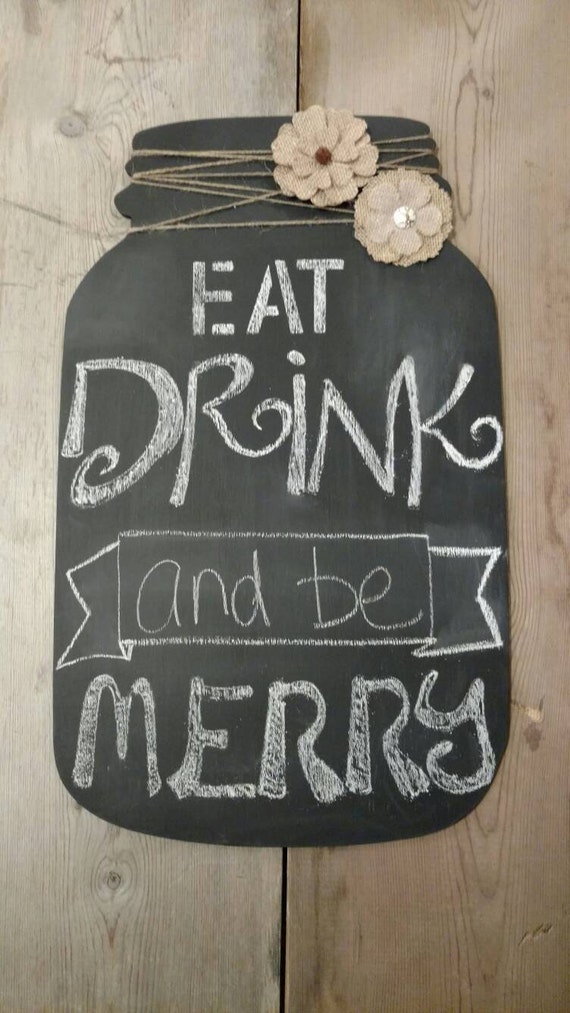 EAT
DRiNK
and be
MERRY